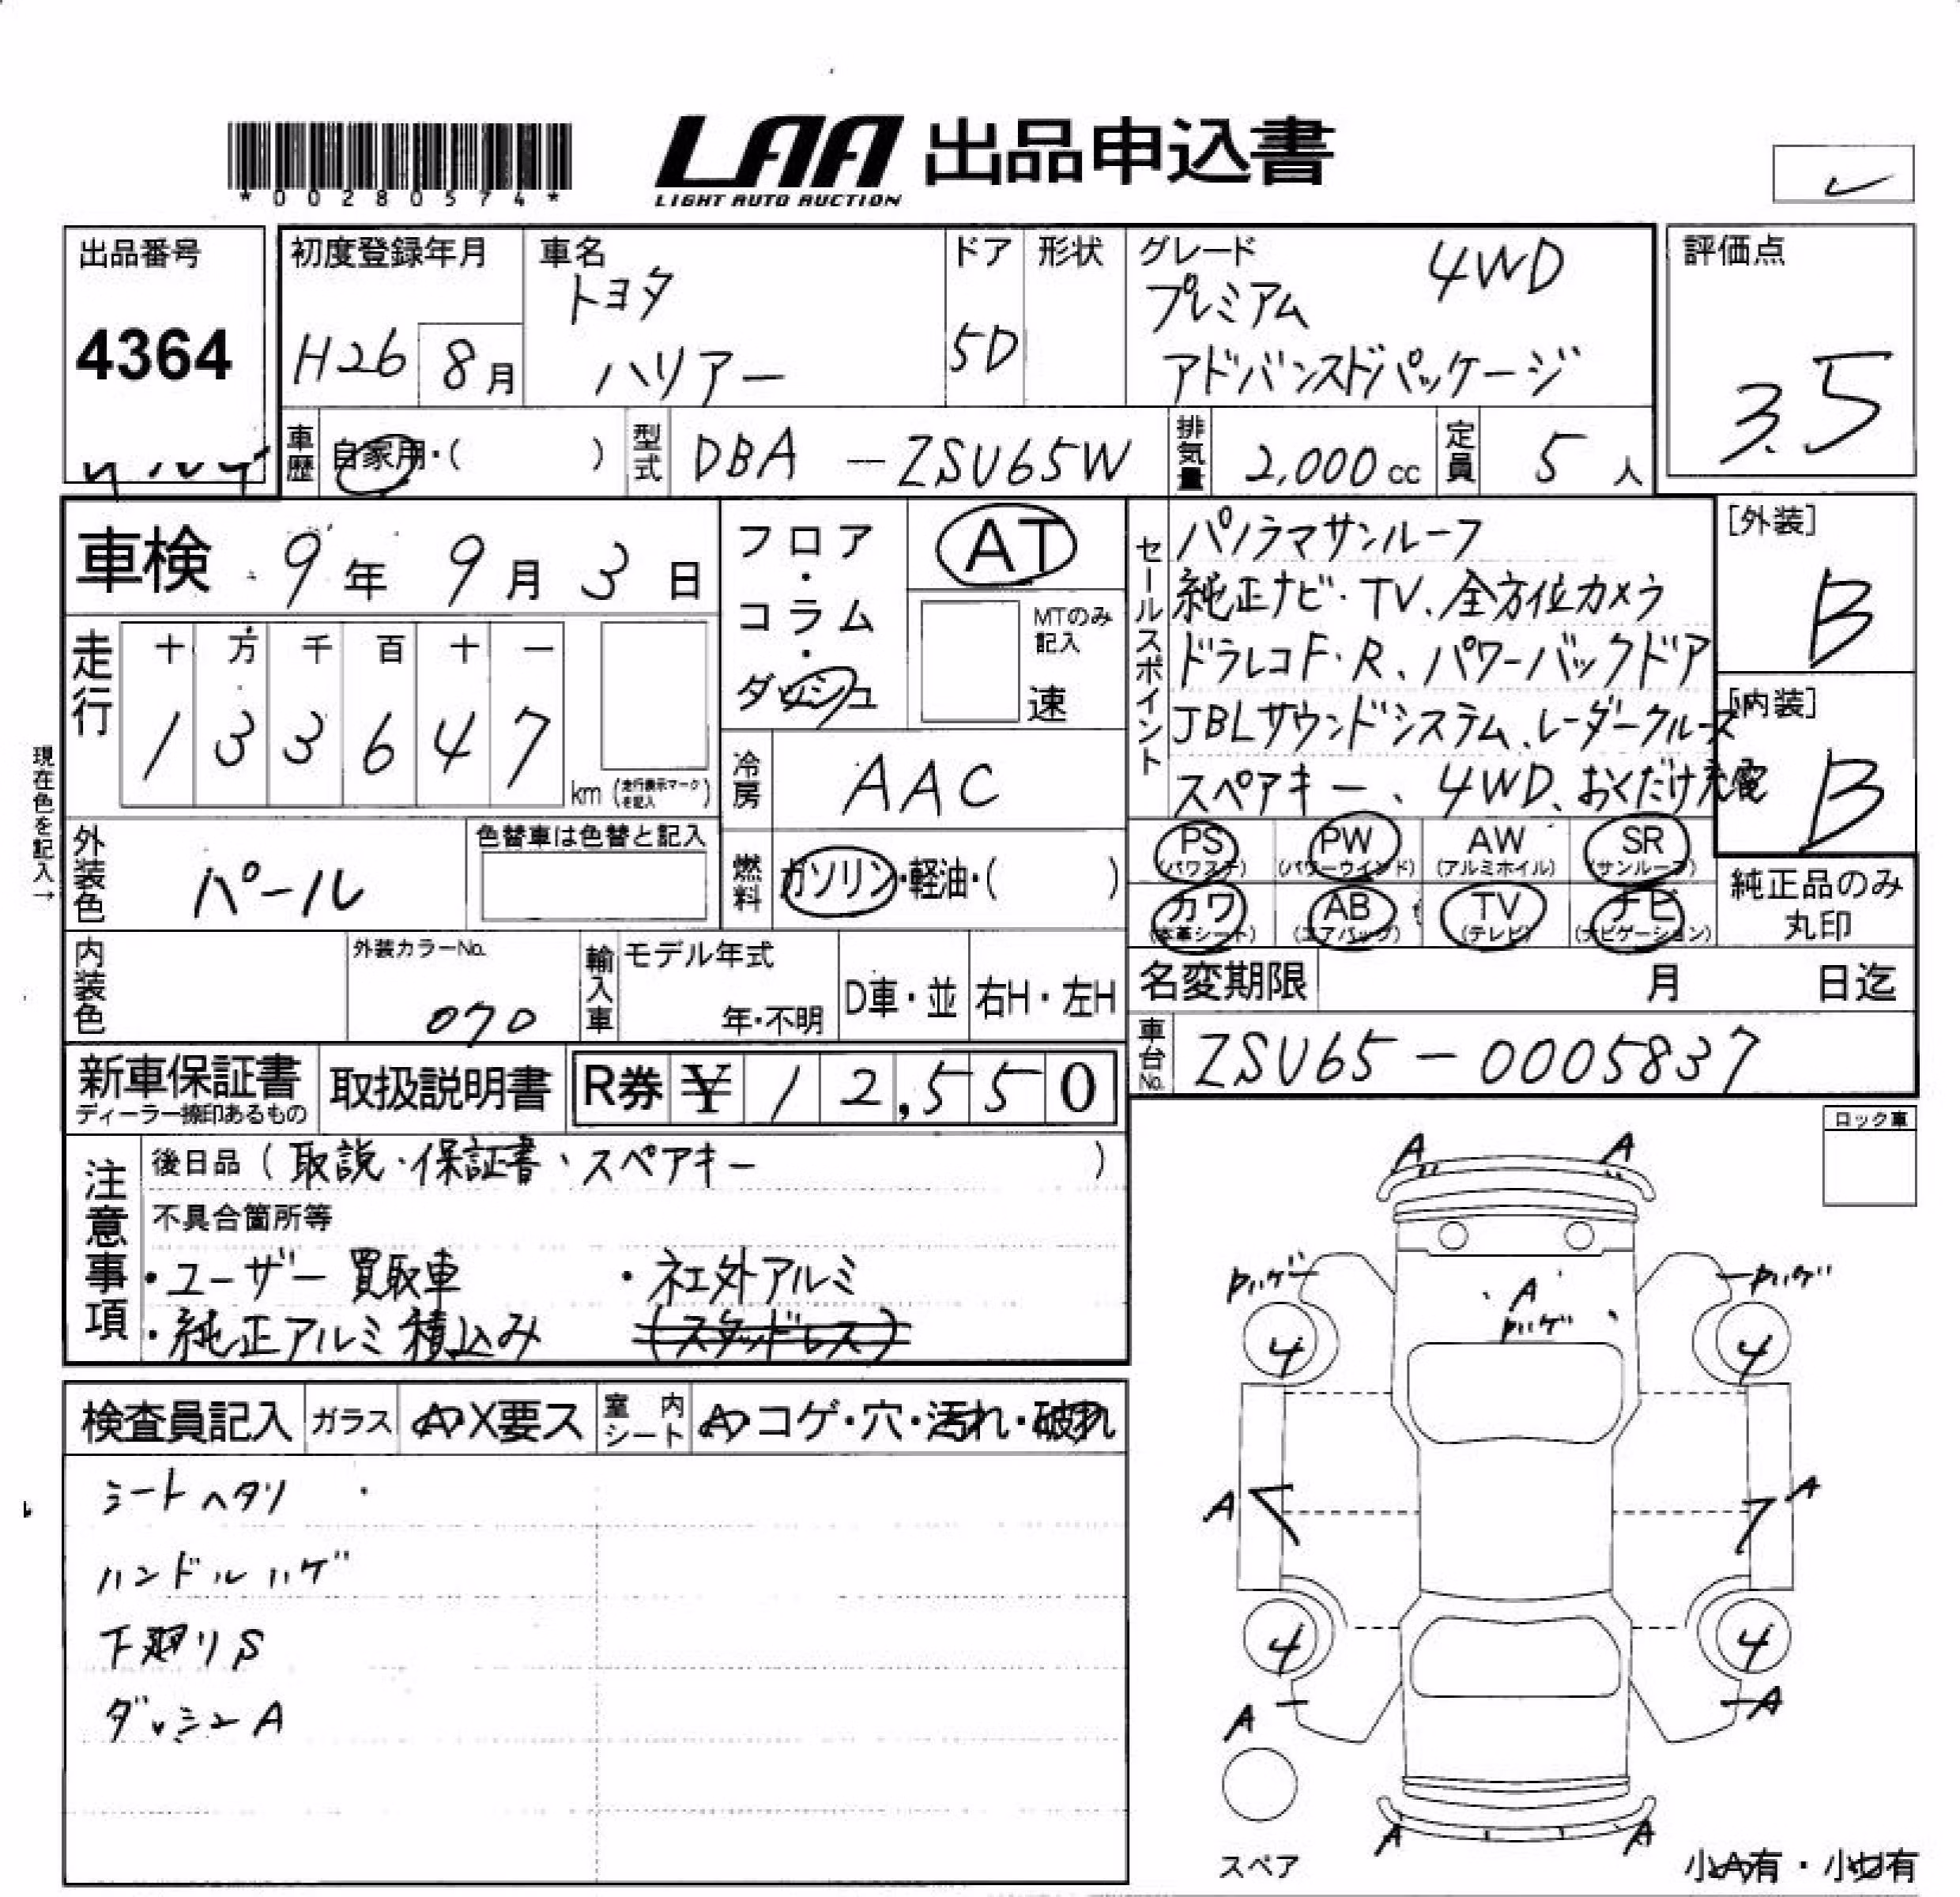 *00280574*
LAA 出品申込書
LIGHT AUTO AUCTION
出品番号
4364
初度登録年月
H26 8月
車名
トヨタ
ハリアー
ドア
5D
形状
グレード
4WD
プレミアム
アドバンスドパッケージ
評価点
3.5
車歴
自家用・( )
型式
DBA-ZSU65W
排気量
2,000cc
定員
5人
車検 9年 9月 3日
フロア・コラム・ダッシュ
AT
MTのみ記入
速
セールスポイント
パノラマサンルーフ
純正ナビ・TV、全方位カメラ
ドラレコF・R、パワーバックドア
JBLサウンドシステム、レーダークルーズ
スペアキー、4WD、おくだけ充電
[外装]
B
[内装]
B
走行
十 万 千 百 十 一
1 3 3 6 4 7
km (走行表示マークを記入)
現在色を記入→
冷房
AAC
外装色
パール
色替車は色替と記入
燃料
ガソリン・軽油・( )
PS (パワステ) PW (パワーウインド) AW (アルミホイル) SR (サンルーフ)
カワ (本革シート) AB (エアバッグ) TV (テレビ) ナビ (ナビゲーション)
純正品のみ
丸印
内装色
外装カラーNo.
070
輸入車
モデル年式
年・不明
D車・並 右H・左H
名変期限 月 日迄
車台No.
ZSU65-0005837
新車保証書
ディーラー捺印あるもの
取扱説明書
R券 ¥12,550
注意事項
後日品(取説・保証書、スペアキー )
不具合箇所等
・ユーザー買取車 ・社外アルミ
・純正アルミ積込み (スタッドレス)
ロック車
検査員記入 ガラス X要ス 室内シート コゲ・穴・汚れ・破れ
シートヘタリ
ハンドルハゲ
下廻りS
ダッシュA
A A
A
4 4
A A
4 4
A A
A A
スペア
小A有・小U有